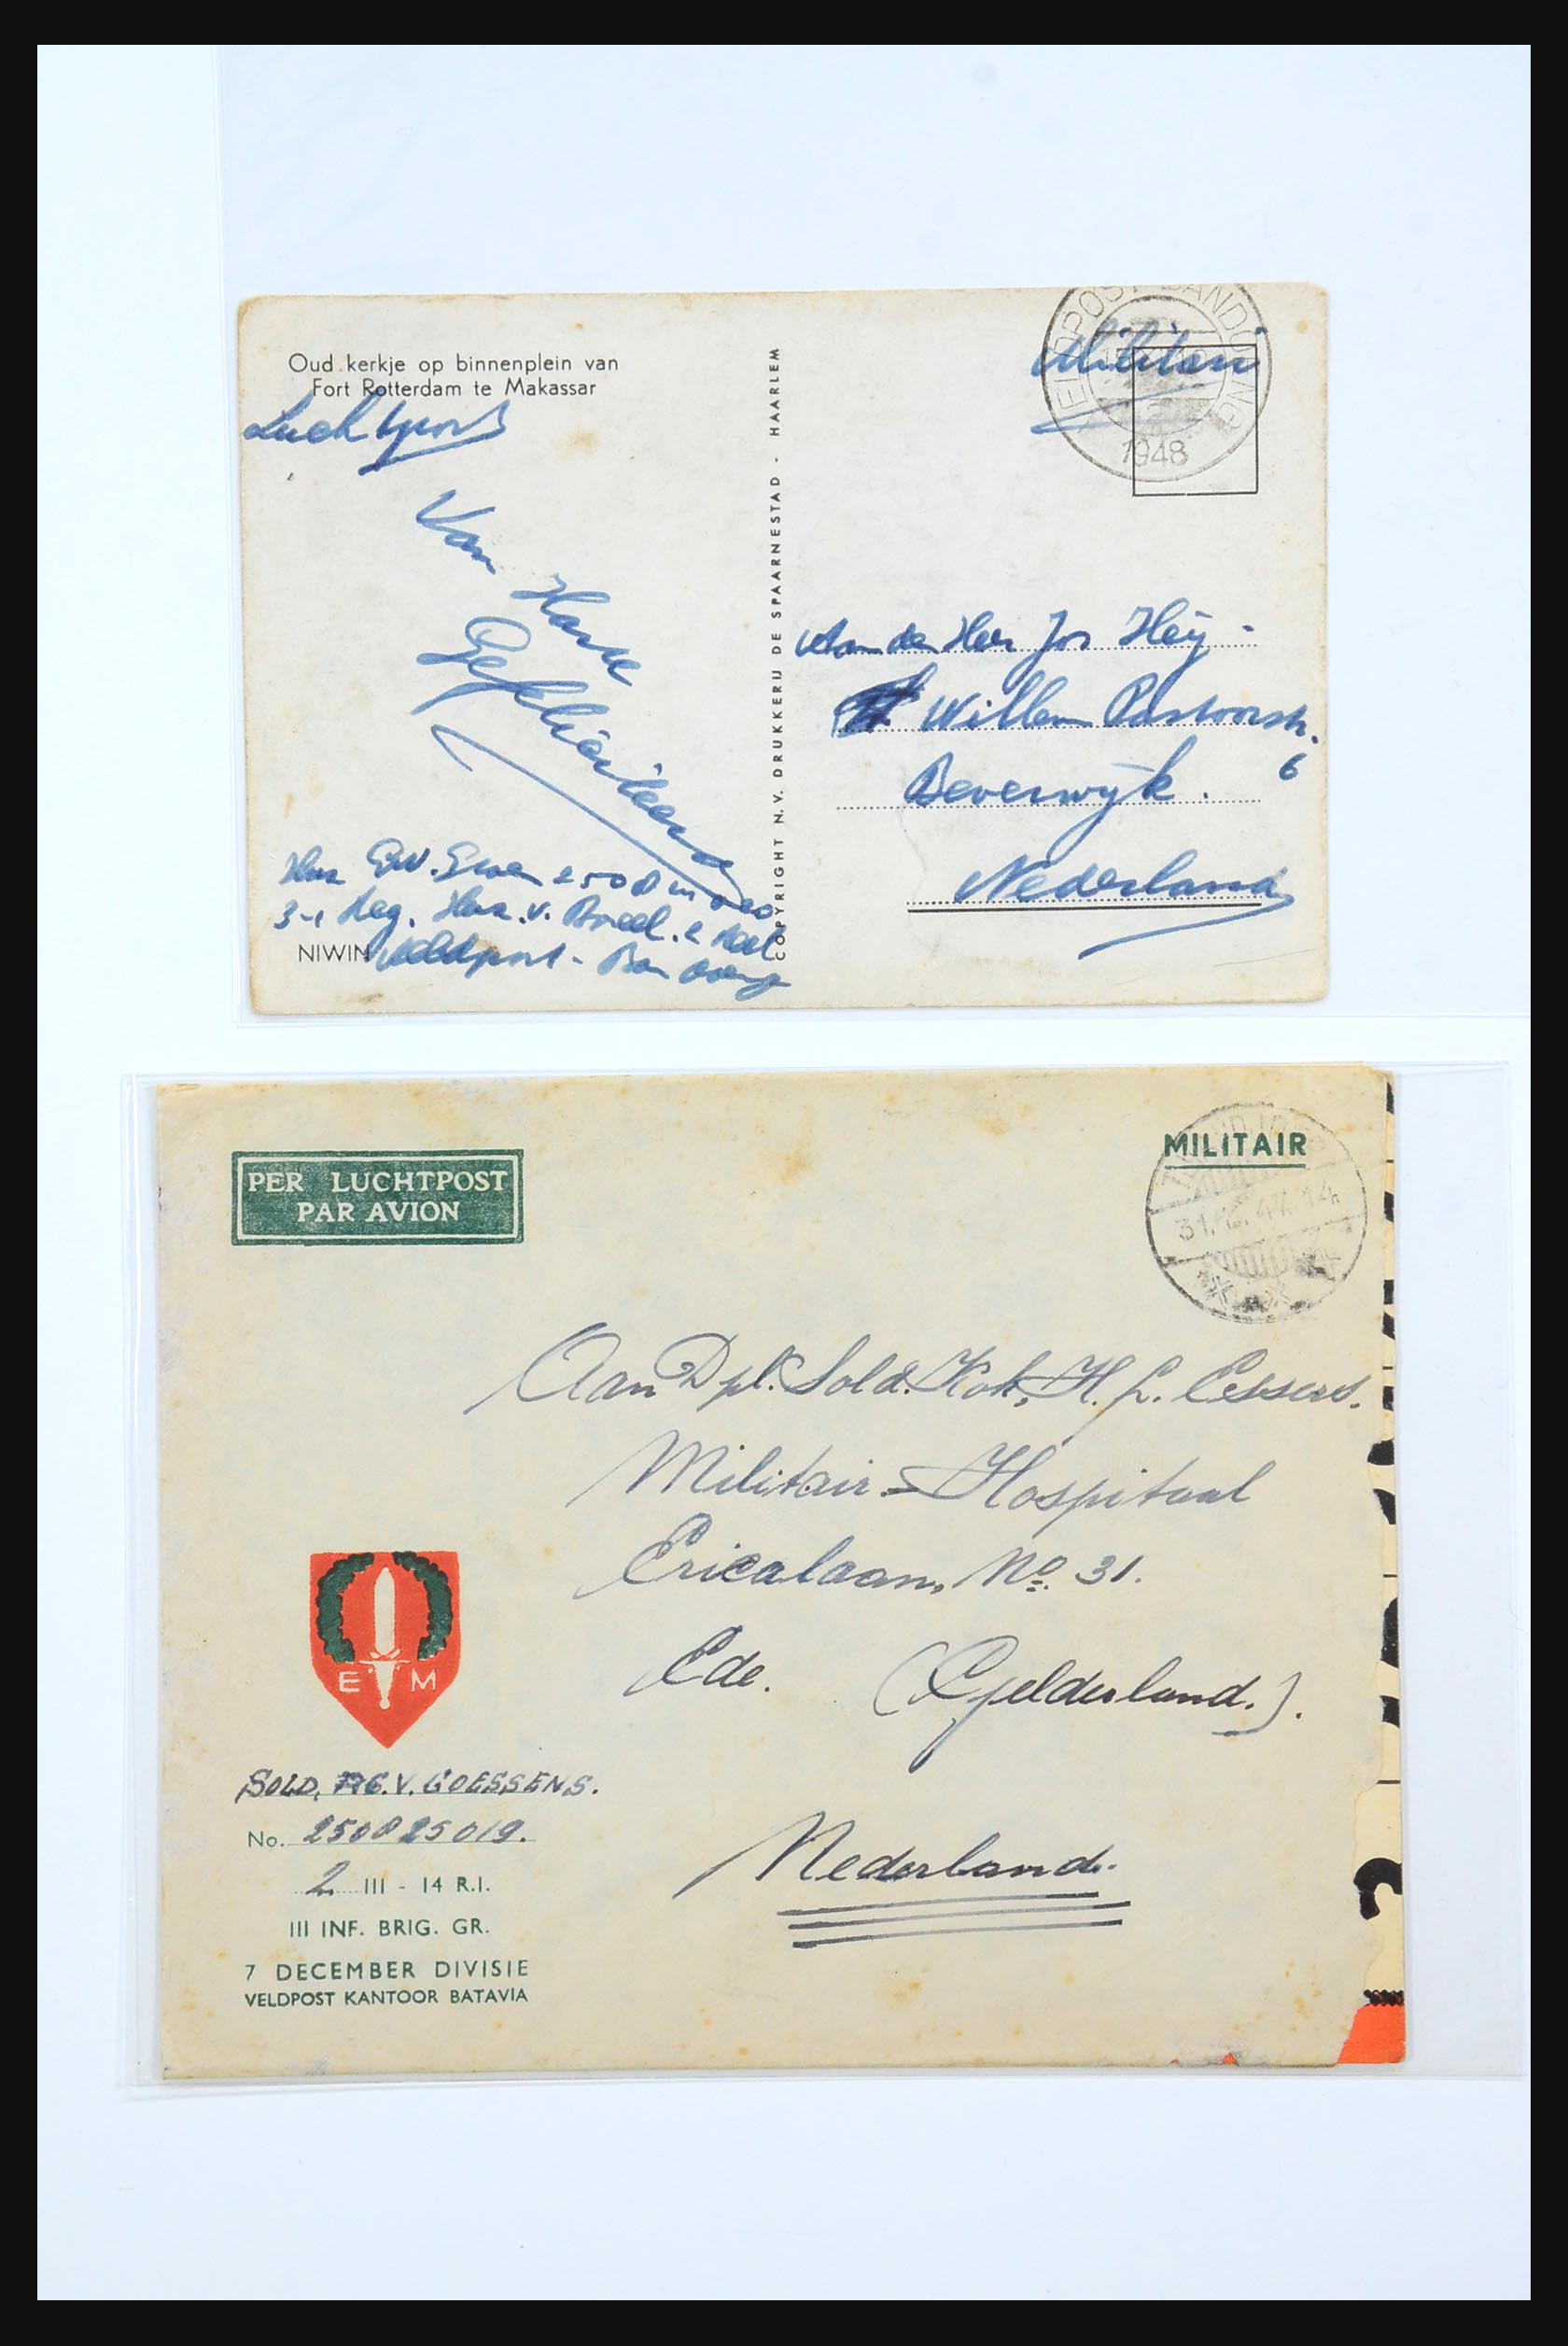 Oud kerkje op binnenplein van
Fort Rotterdam te Makassar
Luchtpost
Van Harte
Gefeliciteerd
3-1 Reg. Huz. v. Boreel. 2
Veldpost - Bandoeng
NIWIN
COPYRIGHT N.V. DRUKKERIJ DE SPAARNESTAD - HAARLEM
VELDPOST BANDOENG
1948
Militair
Aan de Heer Jos Heij -
Willem Pastoorstr.
6
Beverwijk.
Nederland
PER LUCHTPOST
PAR AVION
MILITAIR
31.12.47.14
Aan Dpl. Sold. Kok, H. L. Essers.
Militair = Hospitaal
Ericalaan, No. 31.
Ede. (Gelderland.).
Nederland.
E M
SOLD. V. GOESSENS.
No. 250825019.
2 III - 14 R.I.
III INF. BRIG. GR.
7 DECEMBER DIVISIE
VELDPOST KANTOOR BATAVIA